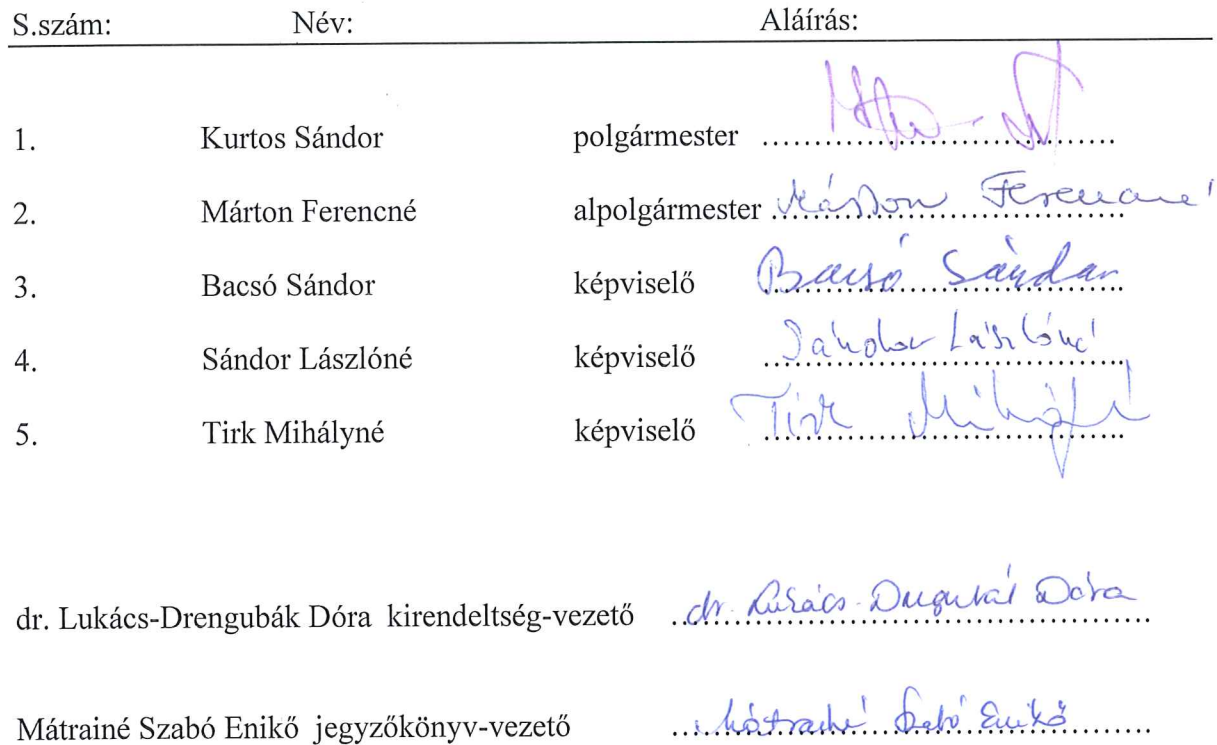 S.szám: Név: Aláírás:
1. Kurtos Sándor polgármester
2. Márton Ferencné alpolgármester Márton Ferencné
3. Bacsó Sándor képviselő Bacsó Sándor
4. Sándor Lászlóné képviselő Sándor Lászlóné
5. Tirk Mihályné képviselő Tirk Mihályné
dr. Lukács-Drengubák Dóra kirendeltség-vezető dr. Lukács-Drengubák Dóra
Mátrainé Szabó Enikő jegyzőkönyv-vezető Mátrainé Szabó Enikő